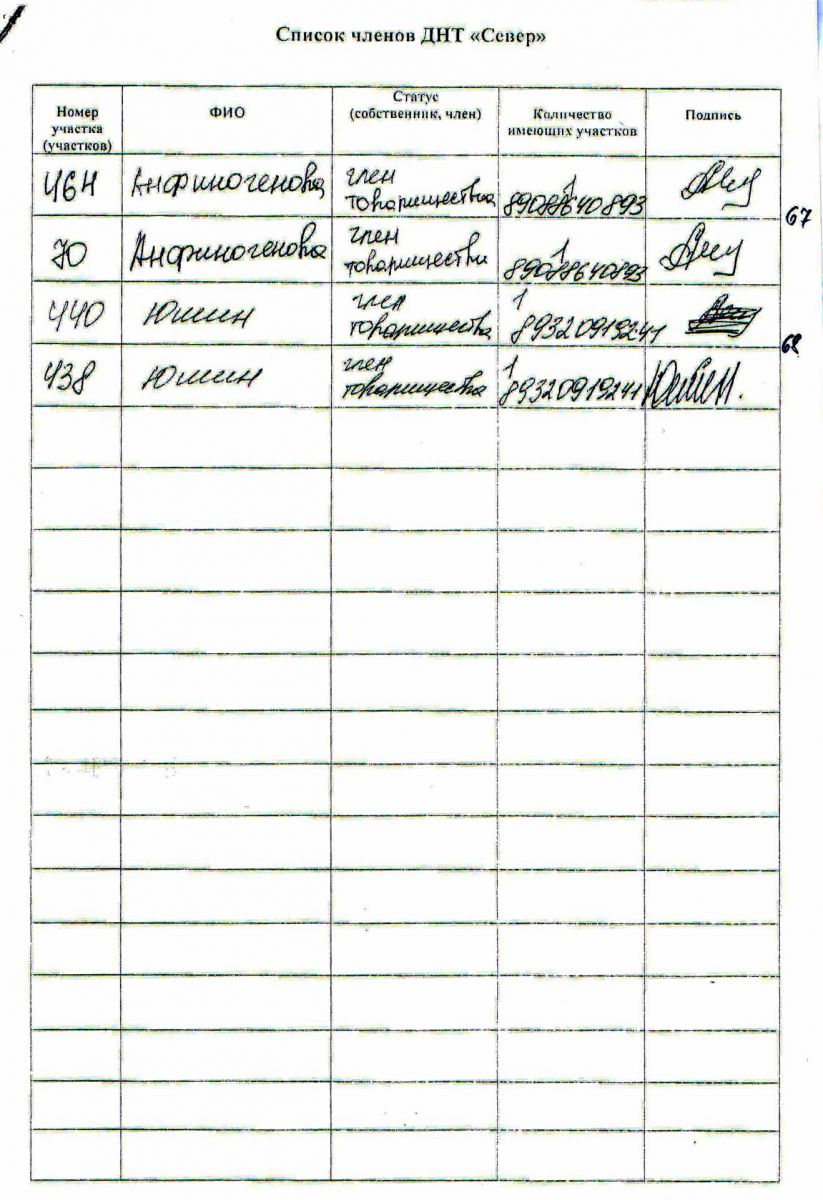 Список членов ДНТ «Север»
Номер участка (участков) ФИО Статус (собственник, член) Количество имеющих участков Подпись
464 Анфиногенова член товарищества 1 89088640893
67
70 Анфиногенова член товарищества 1 89088640893
440 Юшин член товарищества 1 89320919241
68
438 Юшин член товарищества 1 89320919241 Юшин.